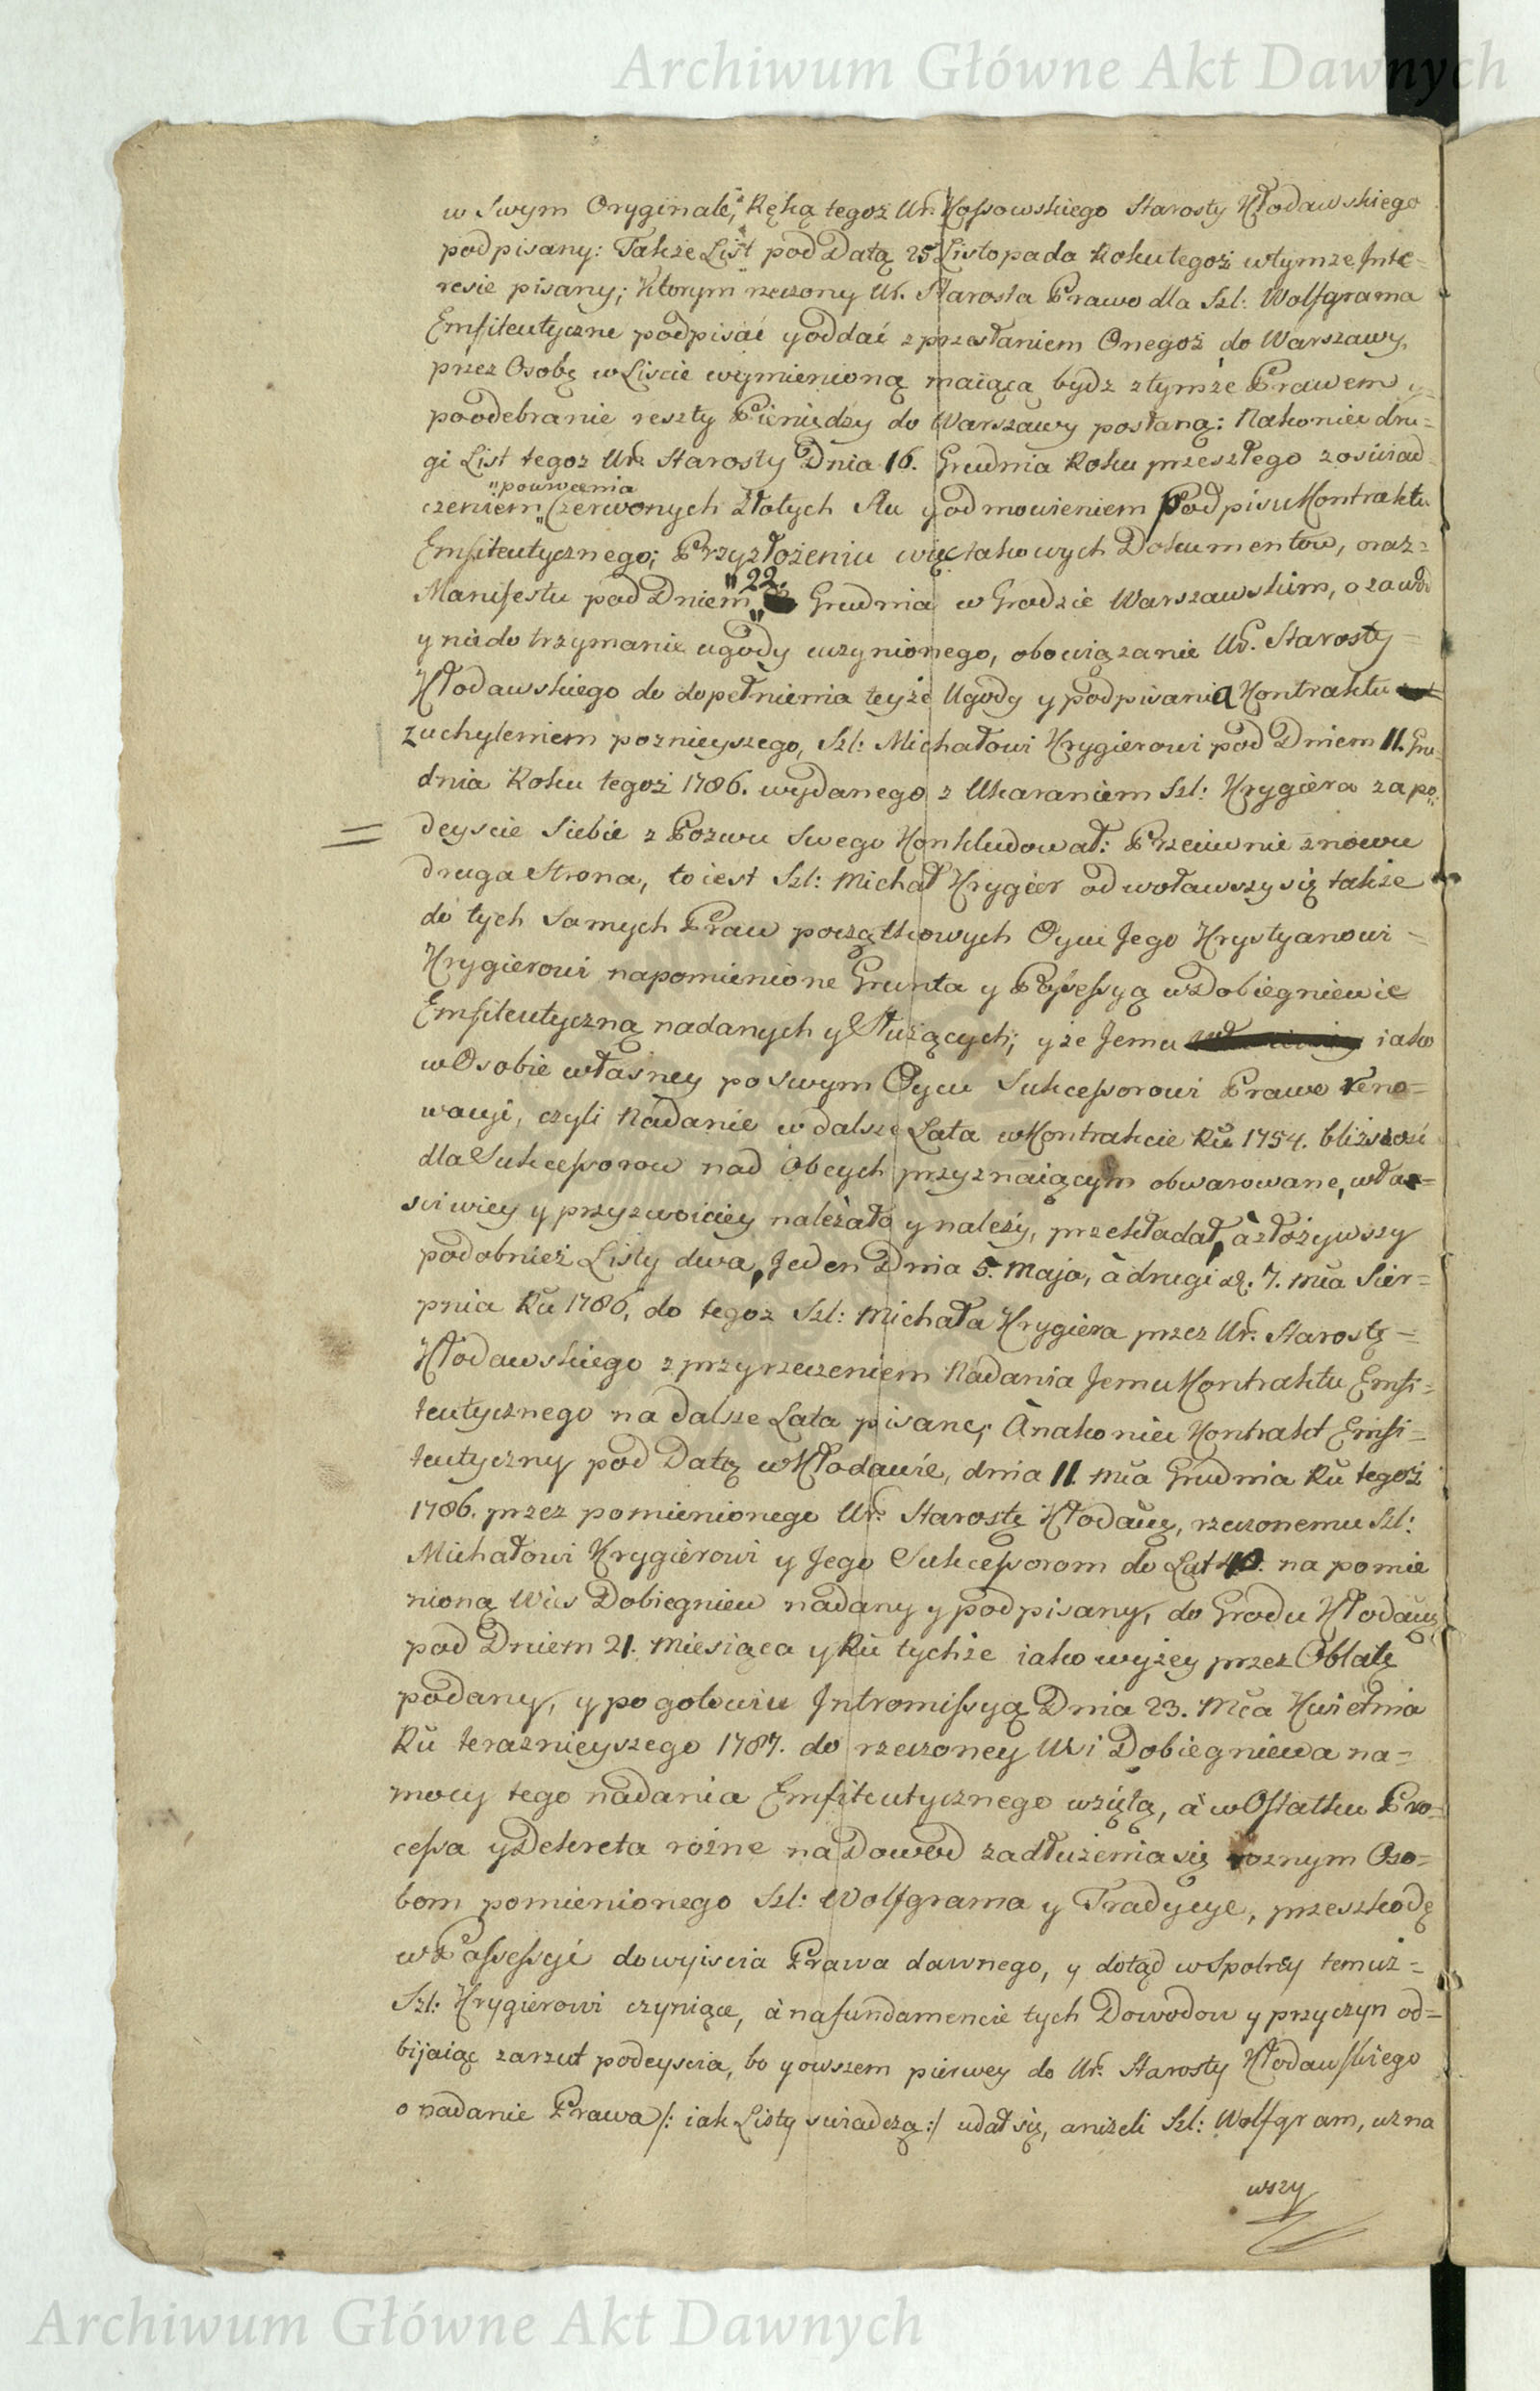 Archiwum Główne Akt Dawnych
w Swym Oryginale, Ręką tegoż Ur. Kossowskiego Starosty Kłodawskiego
podpisany: Takze List pod Datą 25 Listopada Roku tegoż w tymze Inte-
resie pisany; Ktorym rzeczony Ur. Starosta Prawo dla Szl: Wolfgrama
Emfiteutyczne podpisać y oddać z przesłaniem Onegoż do Warszawy,
przez Osobę w Liscie wymienioną maiącą bydz z tymże Prawem y
po odebranie reszty Pieniędzy do Warszawy posłaną: Nakoniec dru-
gi List tegoz Ur. Starosty Dnia 16. Grudnia Roku przeszłego z oswiad
powrocenia
czeniem Czerwonych Złotych Stu y odmowieniem Podpisu Kontraktu
Emfiteutycznego; Przy złożeniu więc takowych Dokumentow, oraz-
22.
Manifestu pod Dniem Grudnia w Grodzie Warszawskim, o zawod
y niedotrzymanie ugody uczynionego, obowiązanie Ur. Starosty
Kłodawskiego do dopełnienia teyże Ugody y podpisania Kontraktu
z uchyleniem poznieyszego, Szl: Michałowi Krygierowi pod Dniem 11. Gru-
dnia Roku tegoż 1786. wydanego z Ukaraniem Szl: Krygiera za po-
deyscie Siebie z Pozwu Swego Konkludował: Przeciwnie znowu
druga Strona, to iest Szl: Michał Krygier odwoławszy się takze
do tych Samych Praw początkowych Oycu Jego Krystyanowi -
Krygierowi na pomienione Grunta y Possessyą w Dobiegniewie
Emfiteutyczną nadanych y Służących; y że Jemu iako
w Osobie własney po swym Oycu Sukcessorowi Prawo reno-
wacyi, czyli Nadanie w dalsze Lata w Kontrakcie Ru 1754. bliższosć
dla Sukcessorow nad Obcych przyznaiącym obwarowane, wła-
sciwiey y przyzwoiciey należało y należy, przekładał, à złożywszy
podobnież Listy dwa, Jeden Dnia 5. Maja, à drugi d. 7. Mca Sier-
pnia Ru 1786, do tegoz Szl: Michała Krygiera przez Ur. Starostę -
Kłodawskiego z przyrzeczeniem Nadania Jemu Kontraktu Emfi-
teutycznego na dalsze Lata pisane; à nakoniec Kontrakt Emfi-
teutyczny pod Datą w Kłodawie, dnia 11. Mca Grudnia Ru tegoż
1786. przez pomienionego Ur. Starostę Kłodawg, rzeczonemu Szl:
Michałowi Krygierowi y Jego Sukcessorom do Lat 40. na pomie
nioną Wies Dobiegniew nadany y podpisany, do Grodu Kłodawg
pod Dniem 21. Miesiąca y Ru tychże iako wyżey przez Oblatę
podany, y po gotowiu Intromissyą Dnia 23. Mca Kwietnia
Ru teraznieyszego 1787. do rzeczoney Wsi Dobiegniewa na-
mocy tego nadania Emfiteutycznego wziętą, à w Ostatku Pro-
cessa y Dekreta rożne na Dowod zadłużenia się roznym Oso-
bom pomienionego Szl: Wolfgrama y Tradycye, przeszkodę
w Possessyi do wyiscia Prawa dawnego, y dotąd wspolney temuż-
Szl: Krygierowi czyniące, à na fundamencie tych Dowodow y przyczyn od-
bijaiąc zarzut podeyscia, bo y owszem pierwey do Ur. Starosty Kłodawskiego
o nadanie Prawa /: iak Listy swiadczą :/ udał się, aniżeli Szl: Wolfgram, uzna
wszy
Archiwum Główne Akt Dawnych